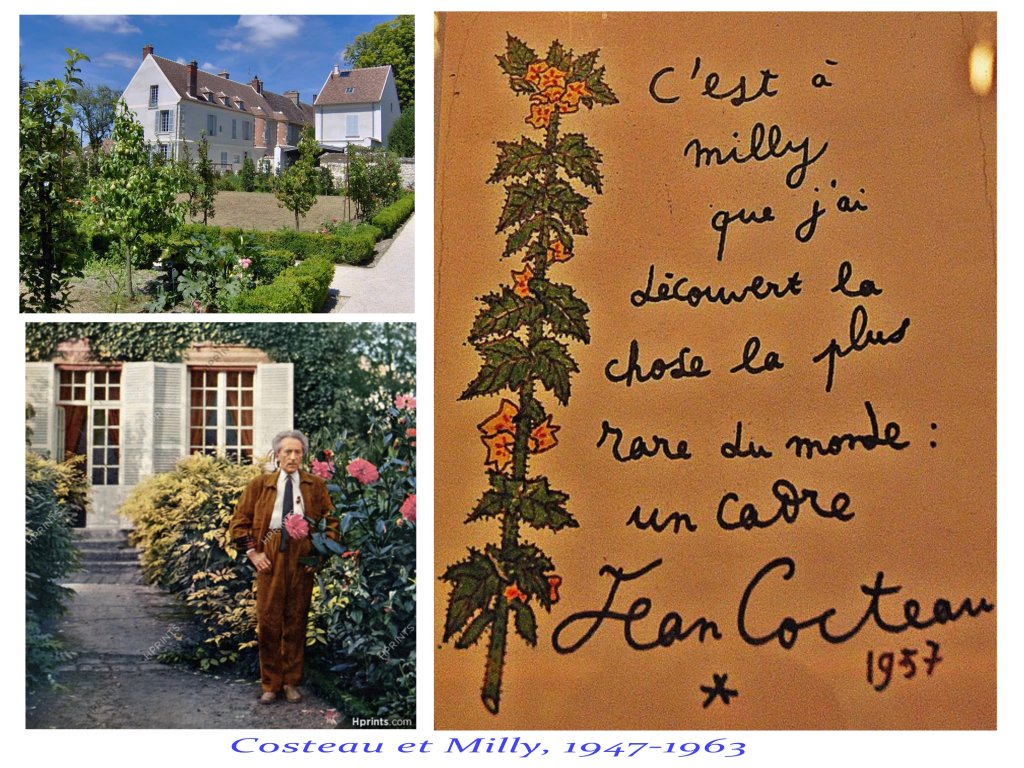 C'est à
milly
que j'ai
découvert la
chose la plus
rare du monde :
un cadre
Jean Cocteau
1957
*
Hprints.com
Costeau et Milly, 1947-1963